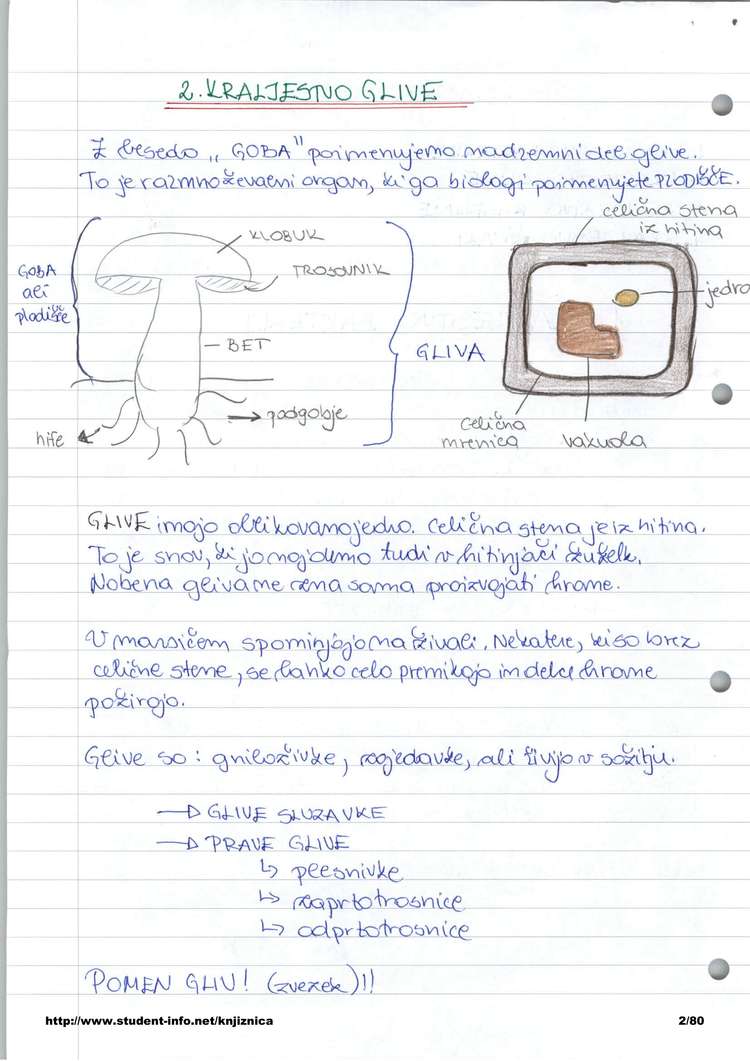 2. KRALJESTVO GLIVE
Z besedo „GOBA" poimenujemo nadzemni del glive.
To je razmnoževalni organ, ki ga biologi poimenujete PLODIŠČE.
celična stena
iz hitina
KLOBUK
GOBA
ali
plodišče
TROSOVNIK
jedro
BET
GLIVA
podgobje
hife
celična
mrenica
vakuola
GLIVE imajo oblikovano jedro. Celična stena je iz hitina.
To je snov, ki jo najdemo tudi v hitinjači žuželk.
Nobena gliva ne zna sama proizvajati hrane.
V marsičem spominjajo na živali. Nekatere, ki so brez
celične stene, se lahko celo premikajo in delce hrane
požirajo.
Glive so: gniloživke, zajedavke, ali živijo v sožitju.
→ GLIVE SLUZAVKE
→ PRAVE GLIVE
↳ plesnivke
↳ zaprtotrosnice
↳ odprtotrosnice
POMEN GLIV! (zvezek)!!
http://www.student-info.net/knjiznica
2/80